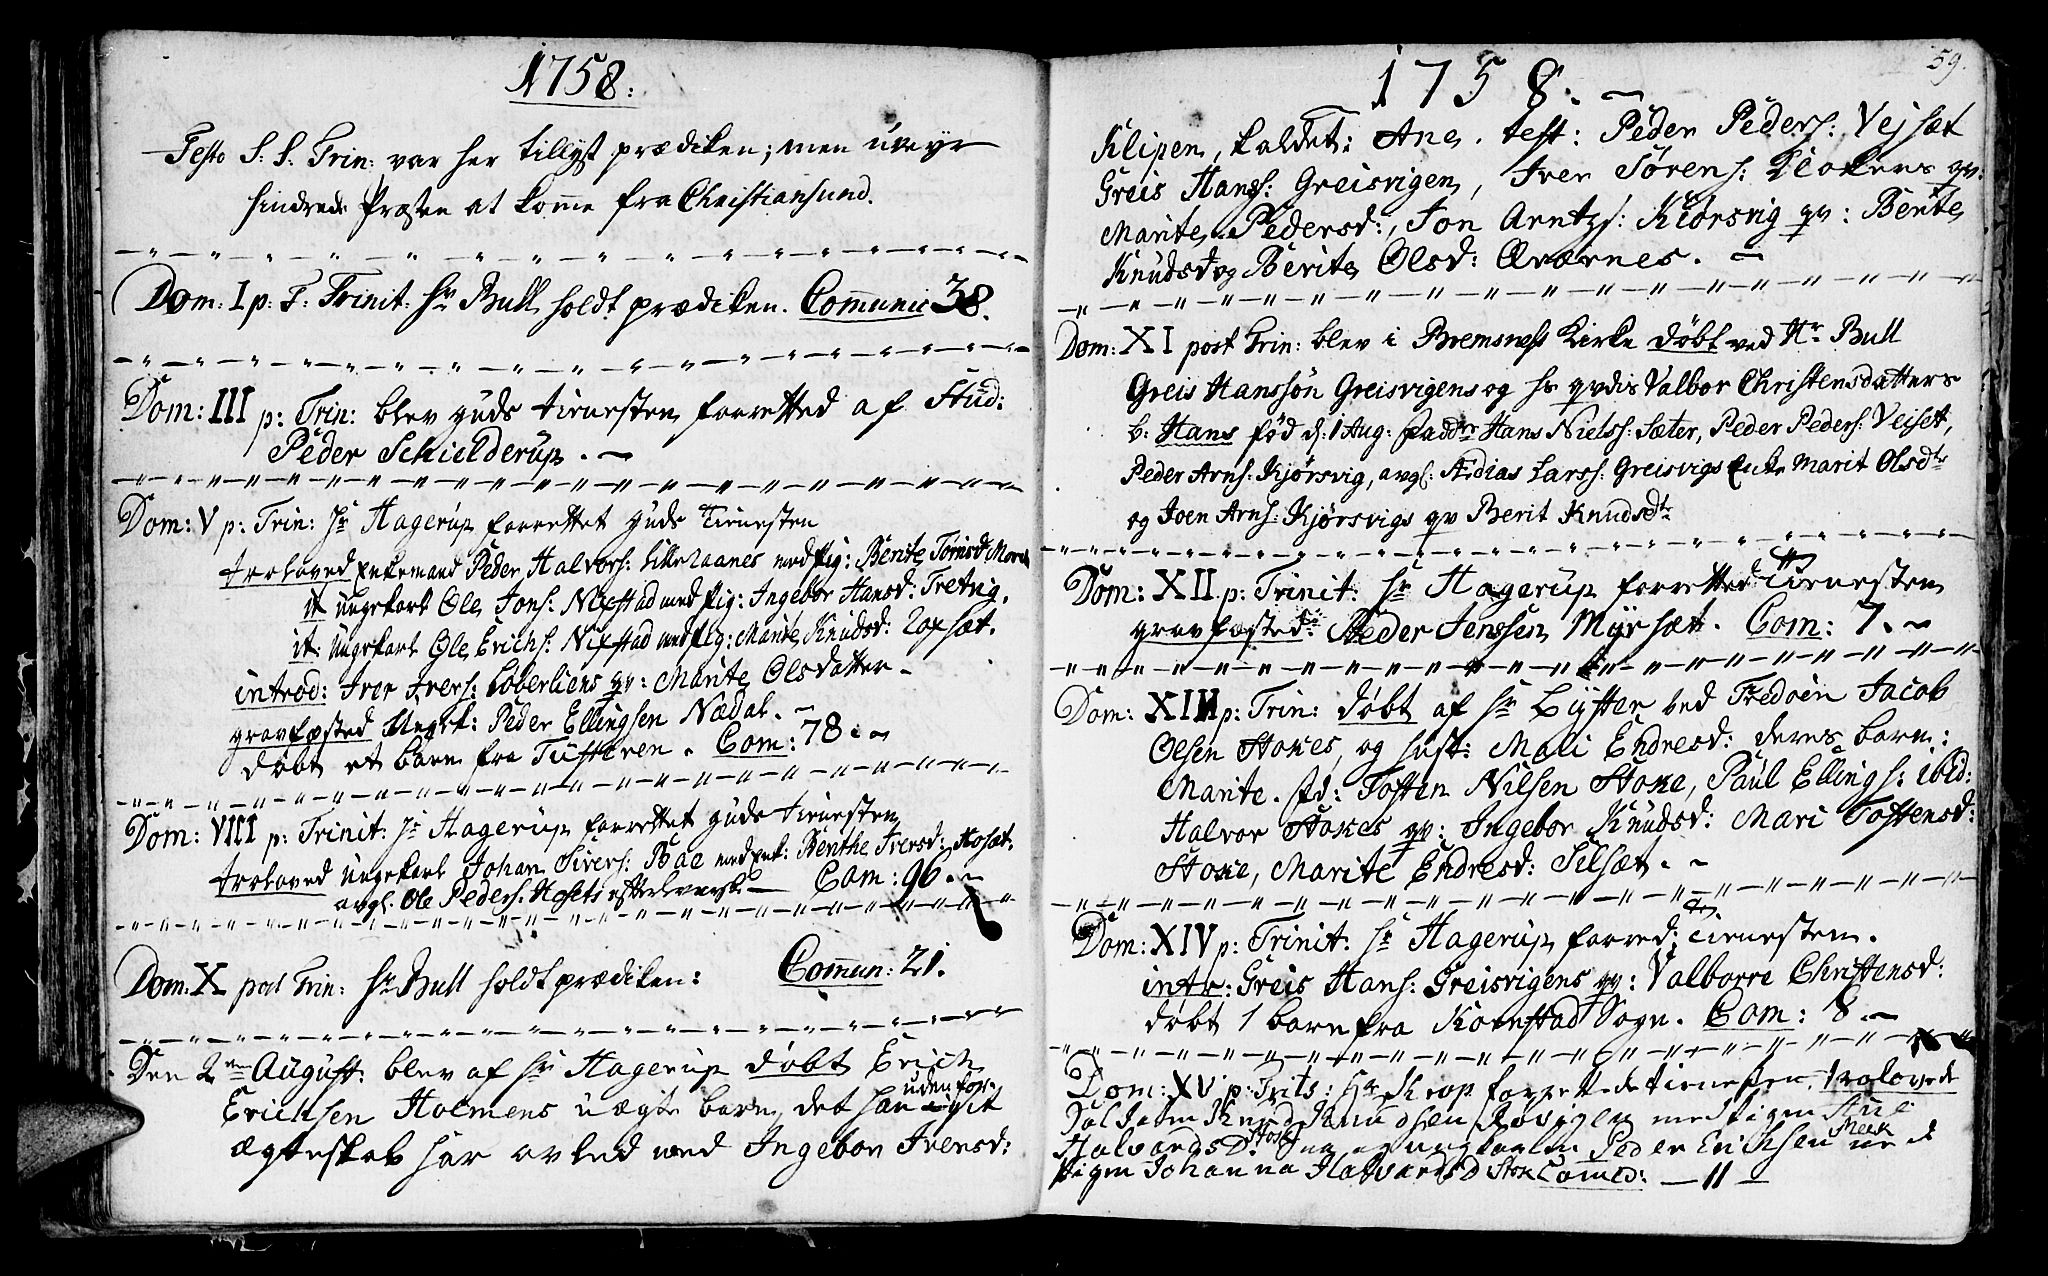 1758:
Festo S: S: Trin: var her tillyst prædiken; men uveyr
hindrede Præsten at komme fra Christiansund.
Dom: I p: F: Trinit: Hr Bull holdt prædiken. Comunic 38.
Dom: III p: Trin: blev guds tienesten forretted af Stud:
Peder Schielderup.
Dom: V p: Trin: Hr Hagerup forrettet guds Tienesten
troloved Enkemand Peder Halvors: med Pig: Bente
it ungekarl Ole Jons: Nixstad med Pig: Ingebor Hansd: Tretvig.
it: ungekarl Ole Erichs: Nixstad med Pig: Marite Knudsd:
introd: Iver Ivers: Loberliens qv: Marite Olsdatter
gravfæsted Ungk: Peder Ellingsen Nædal.
döbt et barn fra Tusteren. Com: 78.
Dom: VIII p: Trinit: Hr Hagerup forrettet guds tienesten
troloved ungekarl Johan Sivers: Bae med Enk: Benthe Iversd: Hosæt.
avgl. Ole Peders: Hosets efterleversk Com: 96.
Dom: X post Trin: Hr Bull holdt prædiken: Commun: 21.
Den 2den August: blev af Hr Hagerup döbt Erich
Erichsen Holmens uægte barn, det han uden for sit
ægteskab har avled med Ingebor Iversd:
59.
1758.
Klipen, kaldet: Ane. test: Peder Peders: Vejsæt
Greis Hans: Greisvigen, Iver Sörens: Klokers qv:
Marite Pedersd:, Jon Arntzs: Kiörsvig qv: Bente
Knudsd og Berite Olsd: Qværnes.
Dom: XI post Trin: blev i Bremsness Kirke döbt ved Hr Bull
Greis Hanssøn Greisvigens og hs qvdis Valbor Christensdatters
b: Hans fød d: 1 Aug: Faddre Hans Nielss: Sæter, Peder Peders: Veiset,
Peder Arns: Kjørsvig, avgl: Ædias Larss: Greisvigs Enke Marit Olsdtr
og Joen Arns: Kjørsvigs qv Berit Knudsdtr
Dom: XII p: Trinit: Hr Hagerup forretted Tienesten
gravfæsted: Peder Jenssen Myrsæt. Com: 7.
Dom: XIII p: Trin: döbt af Hr Lyster ved Fredöen Jacob
Olsen Stokes, og hust: Mali Endresd: deres barn:
Marite. Fd: Tosten Nilsen Stoke, Paul Ellings: ibid:
Halvor Stokes qv: Ingebor Knudsd: Mari Tostensd:
Stoke, Marite Endresd: Silsæt.
Dom: XIV p: Trinit: Hr Hagerup forred: Tienesten.
intr: Greis Hans: Greisvigens qv: Valborre Christensd:
döbt 1 barn fra Kornstad Sogn. Com: 8.
Dom: XV p: Trits: Hr Krop forrettede tienesten. trolovede
Soldaten Knud Knudsen med Pigen
Halvardsd: Stok ungkarlen Peder Erichsen Meek med
Pigen Johanna Halvardsd Stok Comed: 11